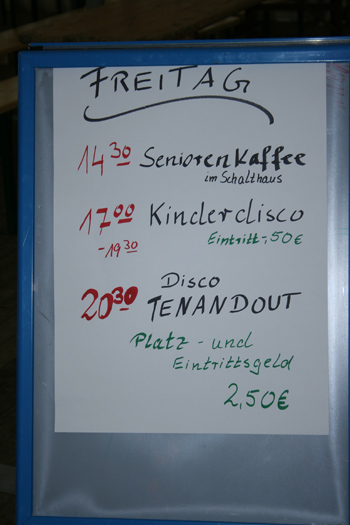 FREITAG
14 30 Seniorenkaffee
im Schalthaus
17 00 Kinderdisco
- 19 30 Eintritt -,50€
Disco
20 30 TENANDOUT
Platz - und
Eintrittsgeld
2,50€